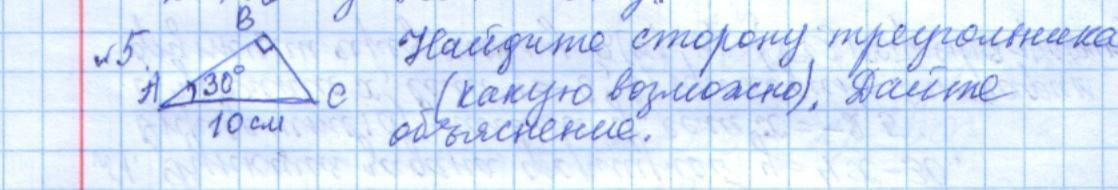 №5.
B
A
30°
C
10 см
Найдите сторону треугольника
(какую возможно). Дайте
объяснение.